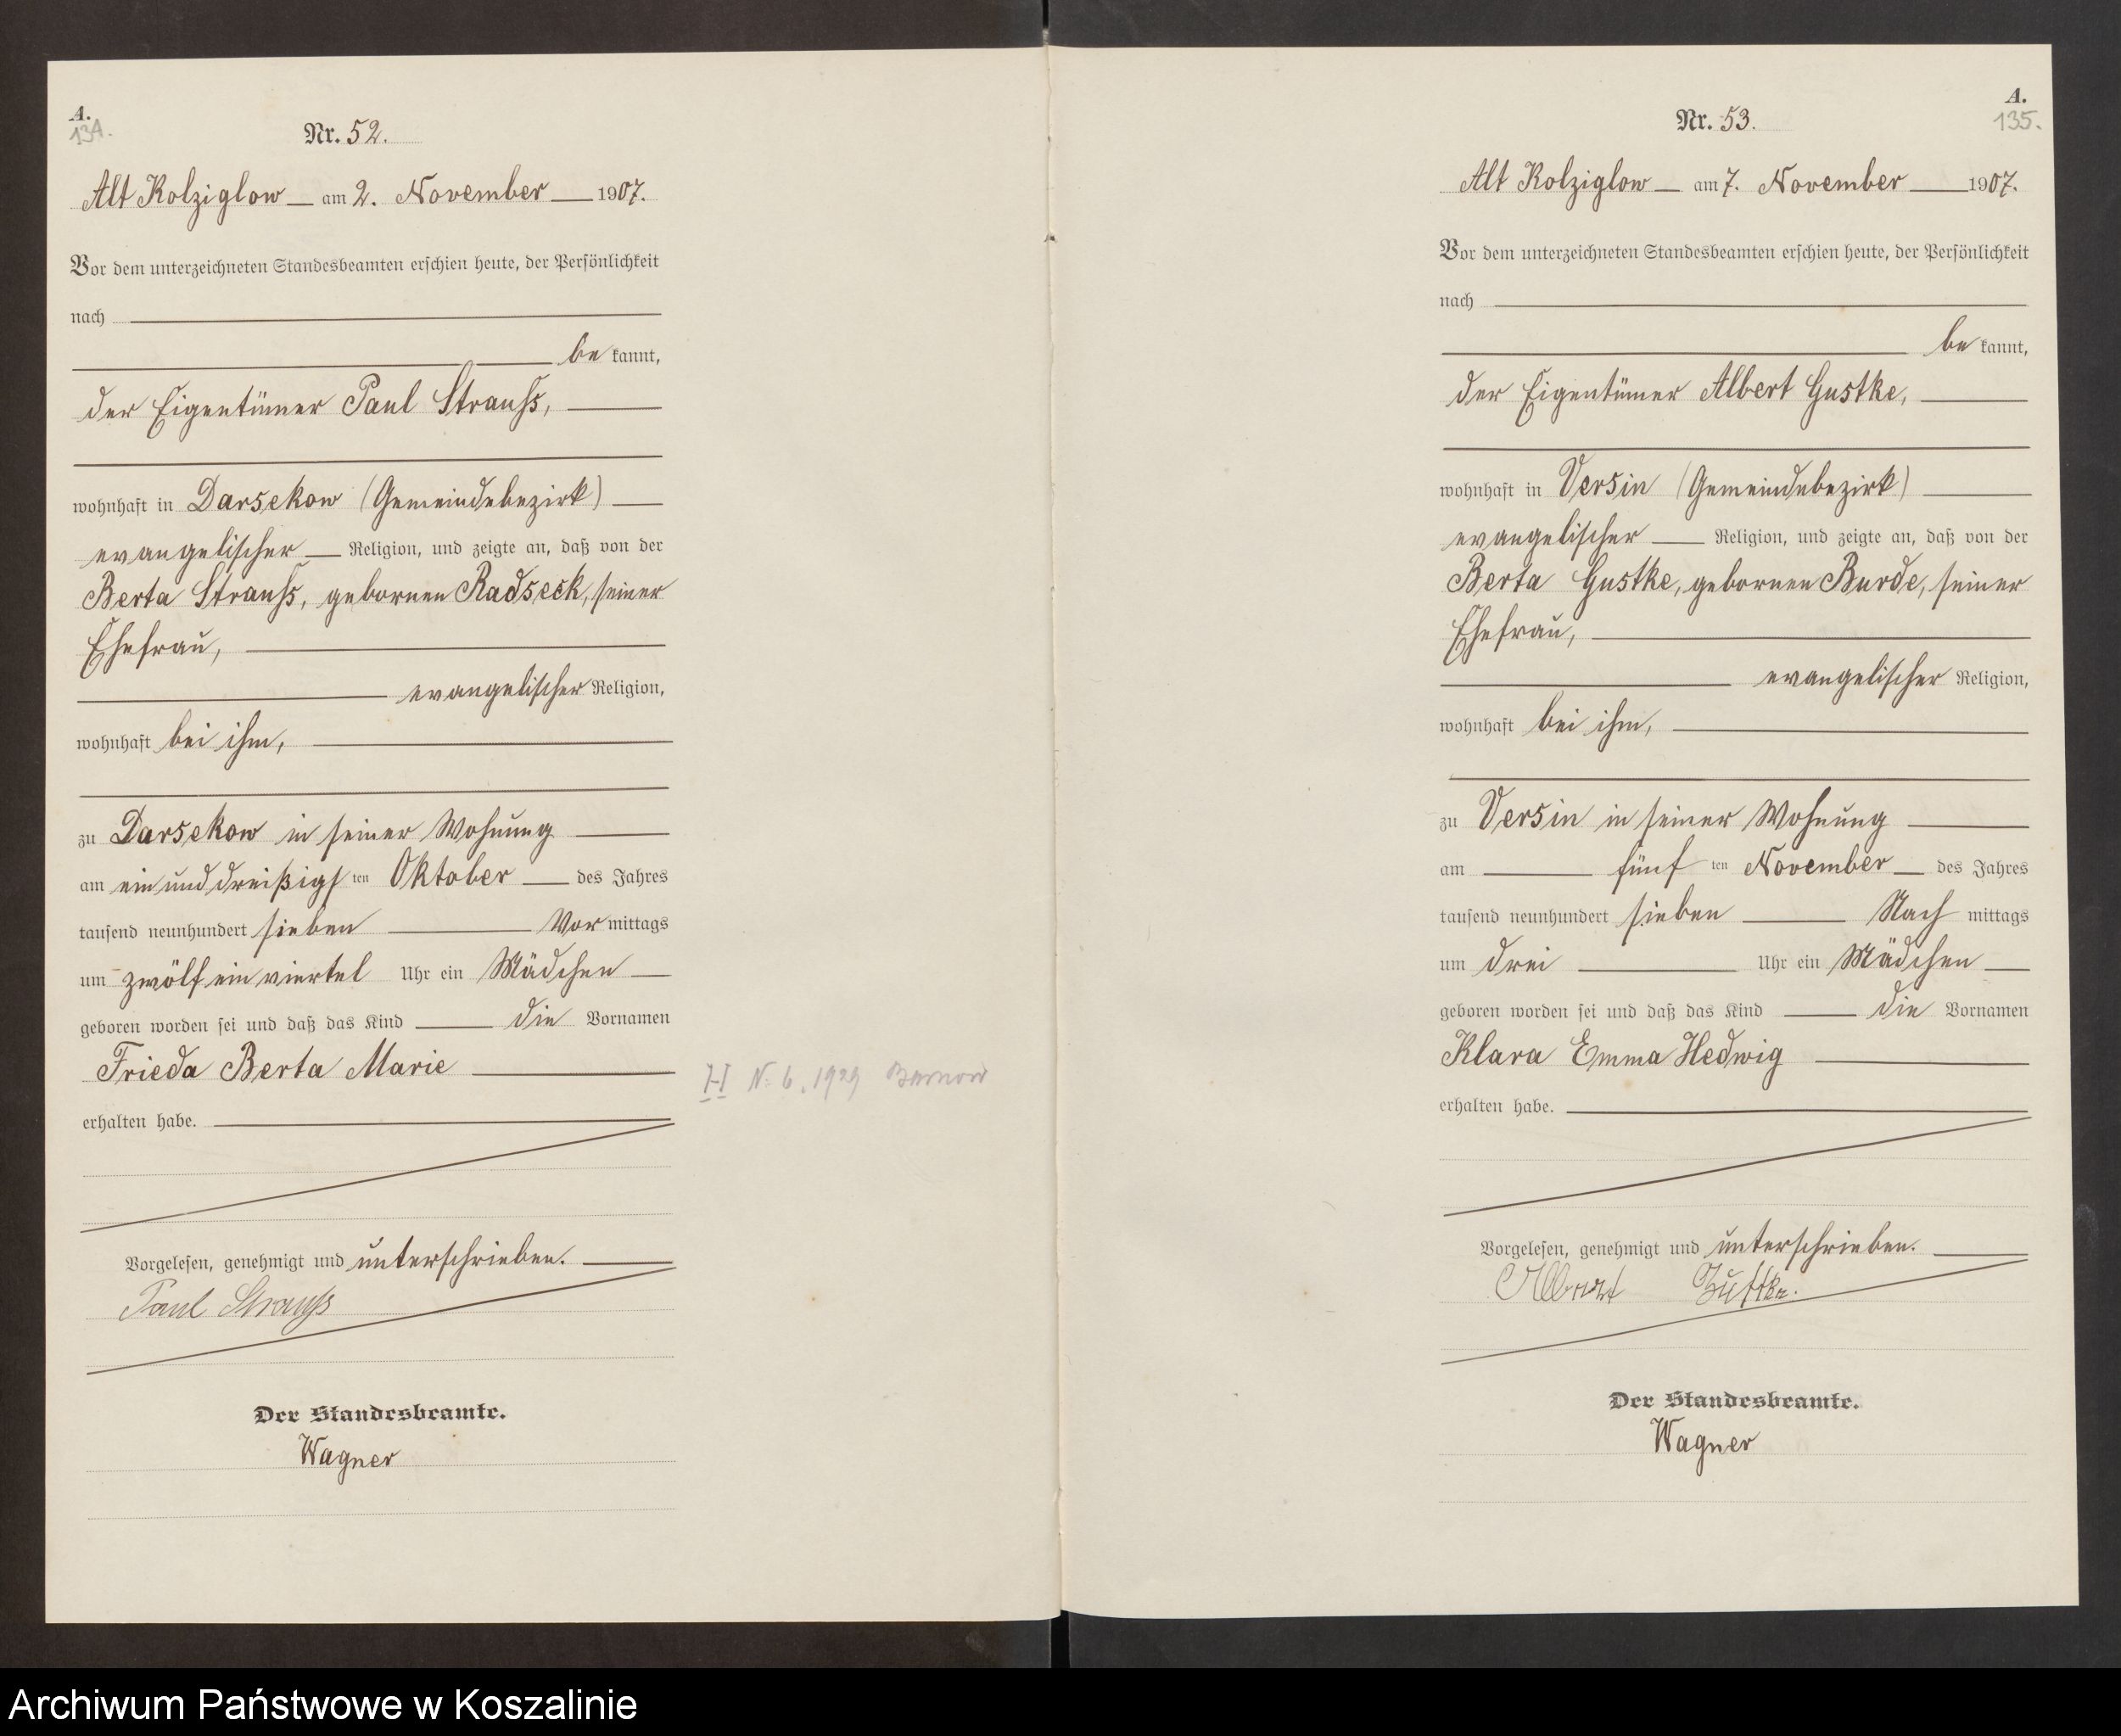 A.
134.
Nr. 52.
Alt Kolziglow am 2. November 1907.
Vor dem unterzeichneten Standesbeamten erschien heute, der Persönlichkeit
nach
be kannt,
der Eigentümer Paul Strauß,
wohnhaft in Darsekow (Gemeindebezirk)
evangelischer Religion, und zeigte an, daß von der
Berta Strauß, gebornen Radseck, seiner
Ehefrau,
evangelischer Religion,
wohnhaft bei ihm,
zu Darsekow in seiner Wohnung
am ein und dreißigsten Oktober des Jahres
tausend neunhundert sieben Vor mittags
um zwölf ein viertel Uhr ein Mädchen
geboren worden sei und daß das Kind die Vornamen
Frieda Berta Marie
erhalten habe.
Vorgelesen, genehmigt und unterschrieben.
Paul Strauß
Der Standesbeamte.
Wagner
H N: 6. 1929 Barnow
A.
135.
Nr. 53.
Alt Kolziglow am 7. November 1907.
Vor dem unterzeichneten Standesbeamten erschien heute, der Persönlichkeit
nach
be kannt,
der Eigentümer Albert Gustke,
wohnhaft in Versin (Gemeindebezirk)
evangelischer Religion, und zeigte an, daß von der
Berta Gustke, gebornen Burde, seiner
Ehefrau,
evangelischer Religion,
wohnhaft bei ihm,
zu Versin in seiner Wohnung
am fünf ten November des Jahres
tausend neunhundert sieben Nach mittags
um drei Uhr ein Mädchen
geboren worden sei und daß das Kind die Vornamen
Klara Emma Hedwig
erhalten habe.
Vorgelesen, genehmigt und unterschrieben.
Albert Gustke.
Der Standesbeamte.
Wagner
Archiwum Państwowe w Koszalinie